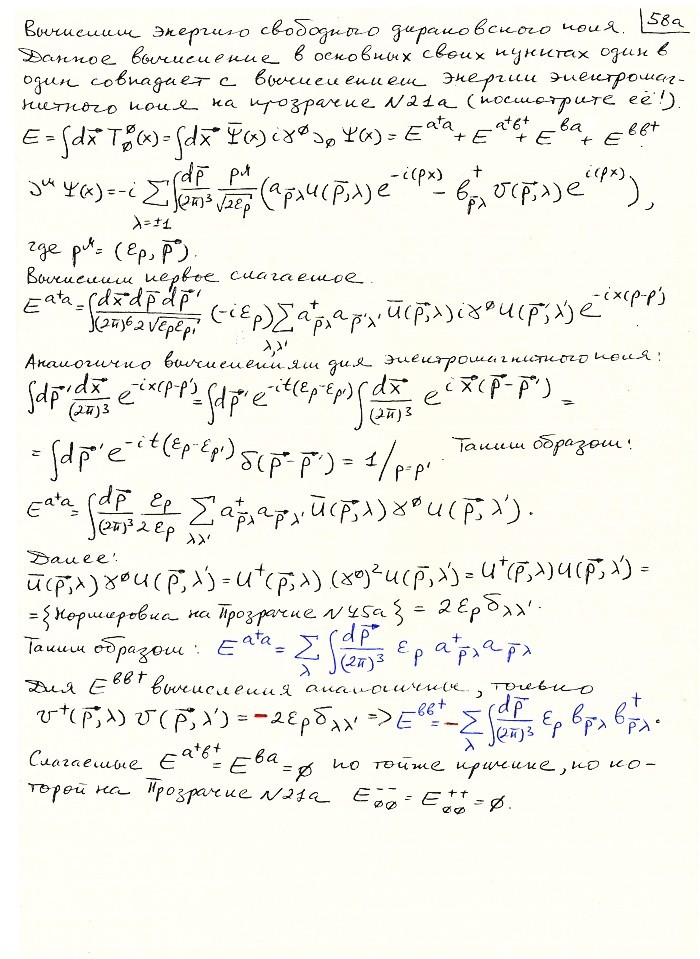 58а
Вычислим энергию свободного дираковского поля.
Данное вычисление в основных своих пунктах один в
один совпадает с вычислением энергии электромаг-
нитного поля на прозрачке N21а (посмотрите её!).
E = ∫dx⃗ T⁰₀(x) = ∫dx⃗ Ψ̄(x) iγ⁰∂₀ Ψ(x) = E^{a⁺a} + E^{a⁺b⁺} + E^{ba} + E^{bb⁺}
∂^μ Ψ(x) = -i ∑_{λ=±1} ∫ dp⃗/(2π)³ p^μ/√(2ε_p) (a_{p⃗λ} u(p⃗,λ) e^{-i(px)} - b⁺_{p⃗λ} v(p⃗,λ) e^{i(px)}),
где p^μ = (ε_p, p⃗).
Вычислим первое слагаемое.
E^{a⁺a} = ∫ dx⃗dp⃗dp⃗'/((2π)⁶ 2√(ε_pε_p')) (-iε_p) ∑_{λ,λ'} a⁺_{p⃗λ} a_{p⃗'λ'} ū(p⃗,λ) iγ⁰ u(p⃗,λ') e^{-ix(p-p')}
Аналогично вычислениям для электромагнитного поля:
∫dp⃗' dx⃗/(2π)³ e^{-ix(p-p')} = ∫dp⃗' e^{-it(ε_p-ε_p')} ∫ dx⃗/(2π)³ e^{ix⃗(p⃗-p⃗')} =
= ∫dp⃗' e^{-it(ε_p-ε_p')} δ(p⃗-p⃗') = 1/_{p=p'}. Таким образом:
E^{a⁺a} = ∫ dp⃗/(2π)³ ε_p/2ε_p ∑_{λλ'} a⁺_{p⃗λ} a_{p⃗λ'} ū(p⃗,λ) γ⁰ u(p⃗,λ').
Далее:
ū(p⃗,λ) γ⁰ u(p⃗,λ') = u⁺(p⃗,λ) (γ⁰)² u(p⃗,λ') = u⁺(p⃗,λ) u(p⃗,λ') =
= {Нормировка на Прозрачке N45а} = 2ε_p δ_{λλ'}.
Таким образом: E^{a⁺a} = ∑_λ ∫ dp⃗/(2π)³ ε_p a⁺_{p⃗λ} a_{p⃗λ}
Для E^{bb⁺} вычисления аналогичные, только
v⁺(p⃗,λ) v(p⃗,λ') = -2ε_p δ_{λλ'} => E^{bb⁺} = -∑_λ ∫ dp⃗/(2π)³ ε_p b_{p⃗λ} b⁺_{p⃗λ}.
Слагаемые E^{a⁺b⁺} = E^{ba} = 0 по той же причине, по ко-
торой на Прозрачке N21а E⁻⁻₀₀ = E⁺⁺₀₀ = 0.